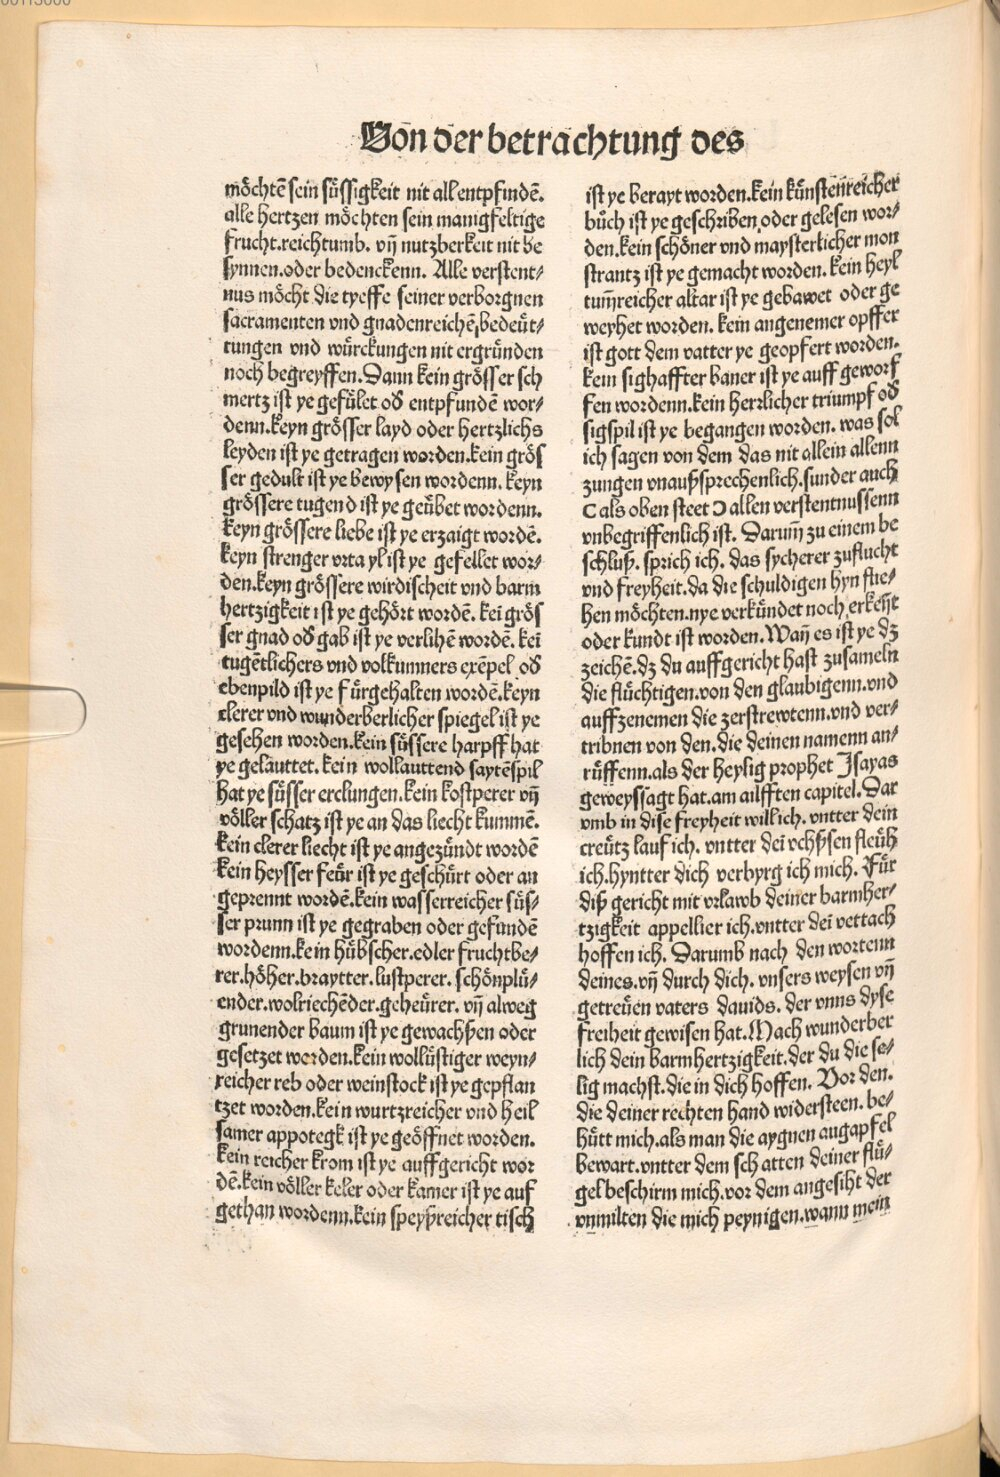 Von der betrachtung des
möchtē sein süssigkeit nit all entpfindē.
alle hertzen möchten sein manigfeltige
frucht.reichtumb. vn̄ nutzberkeit nit be
synnen.oder bedenckenn. Alle verstent⸗
nus möcht die tyeffe seiner verborgnen
sacramenten vnd gnadenreichē bedeüt⸗
tungen vnd würckungen nit ergründen
noch begreyffen. Dann kein grösser sch
mertz ist ye gefület od̄ entpfundē wor⸗
denn. keyn grösser layd oder hertzlichs
leyden ist ye getragen worden. kein grös
ser gedult ist ye bewysen wordenn. keyn
grössere tugend ist ye geübet wordenn.
keyn grössere liebe ist ye erzaigt wordē.
keyn strenger vrtayl ist ye gefellet wor⸗
den. keyn grössere wirdischeit vnd barm
hertzigkeit ist ye gehört wordē. kei grös
ser gnad od̄ gab ist ye verlihē wordē. kei
tugētlichers vnd volkumners exēpel od̄
ebenpild ist ye fürgehalten wordē. keyn
clerer vnd wunderberlicher spiegel ist ye
gesehen worden. kein süssere harpff hat
ye geläuttet. kein wollauttend saytēspil
hat ye süsser erclungen. kein kostperer vn̄
völler schatz ist ye an das liecht kummē.
kein clerer liecht ist ye angezündt wordē
kein heysser feür ist ye geschürt oder an
geprennt wordē. kein wasserreicher süs⸗
ser prunn ist ye gegraben oder gefundē
wordenn. kein hübscher.edler fruchtbe⸗
rer.höher.braytter.lustperer. schönplü⸗
ender.wolriechēder.geheürer. vn̄ alweg
grunender baum ist ye gewachßen oder
gesetzet worden. kein wollüstiger weyn⸗
reicher reb oder weinstock ist ye gepflan
tzet worden. kein wurtzreicher vnd heil
samer appotegk ist ye geöffnet worden.
kein reicher krom ist ye auffgericht wor
dē. kein völler keler oder kamer ist ye auf
gethan wordenn. kein speyßreicher tisch
ist ye berayt worden. kein künstenreicher
büch ist ye geschriben oder gelesen wor⸗
den. kein schöner vnd maysterlicher mon
strantz ist ye gemacht worden. kein heyl
tum̄reicher altar ist ye gebawet oder ge
weyhet worden. kein angenemer opffer
ist gott dem vatter ye geopfert worden.
kein sighaffter baner ist ye auff geworf
fen wordenn. kein herrlicher triumpf od̄
sigspil ist ye begangen worden. was sol
ich sagen von dem das nit allein allenn
zungen vnaußsprechenlich. sunder auch
C als oben steet Ɔ allen verstentnussenn
vnbegriffenlich ist. Darum̄ zu einem be
schluß. sprich ich. das sycherer zuflucht
vnd freyheit. da die schuldigen hyn flie⸗
hen möchten. nye verkündet noch erkent
oder kundt ist worden. Wan̄ es ist ye dz
zeichē. dz du auffgericht hast zusameln
die flüchtigen. von den glaubigenn. vnd
auffzenemen die zerstrewtenn. vnd ver⸗
tribnen von den. die deinen namenn an⸗
rüffenn. als der heylig prophet Isayas
geweyssagt hat. am ailfften capitel. Dar
vmb in dise freyheit will ich. vntter dein
creütz lauf ich. vntter dei vchßsen fleüh
ich. hyntter dich verbyrg ich mich. Für
diß gericht mit vrlawb deiner barmher⸗
tzigkeit appellier ich. vntter dei vettach
hoffen ich. Darumb nach den wortenn
deines. vn̄ durch dich. vnsers weysen vn̄
getreüen vaters dauids. der vnns dyse
freiheit gewisen hat. Mach wunderber
lich dein barmhertzigkeit. der du die se⸗
lig machst. die in dich hoffen. Vor den.
die deiner rechten hand widersteen. be⸗
hütt mich. als man die aygnen augapfel
bewart. vntter dem schatten deiner flü⸗
gel beschirm mich. vor dem angesiht der
vnmilten die mich peynigen. wann mein